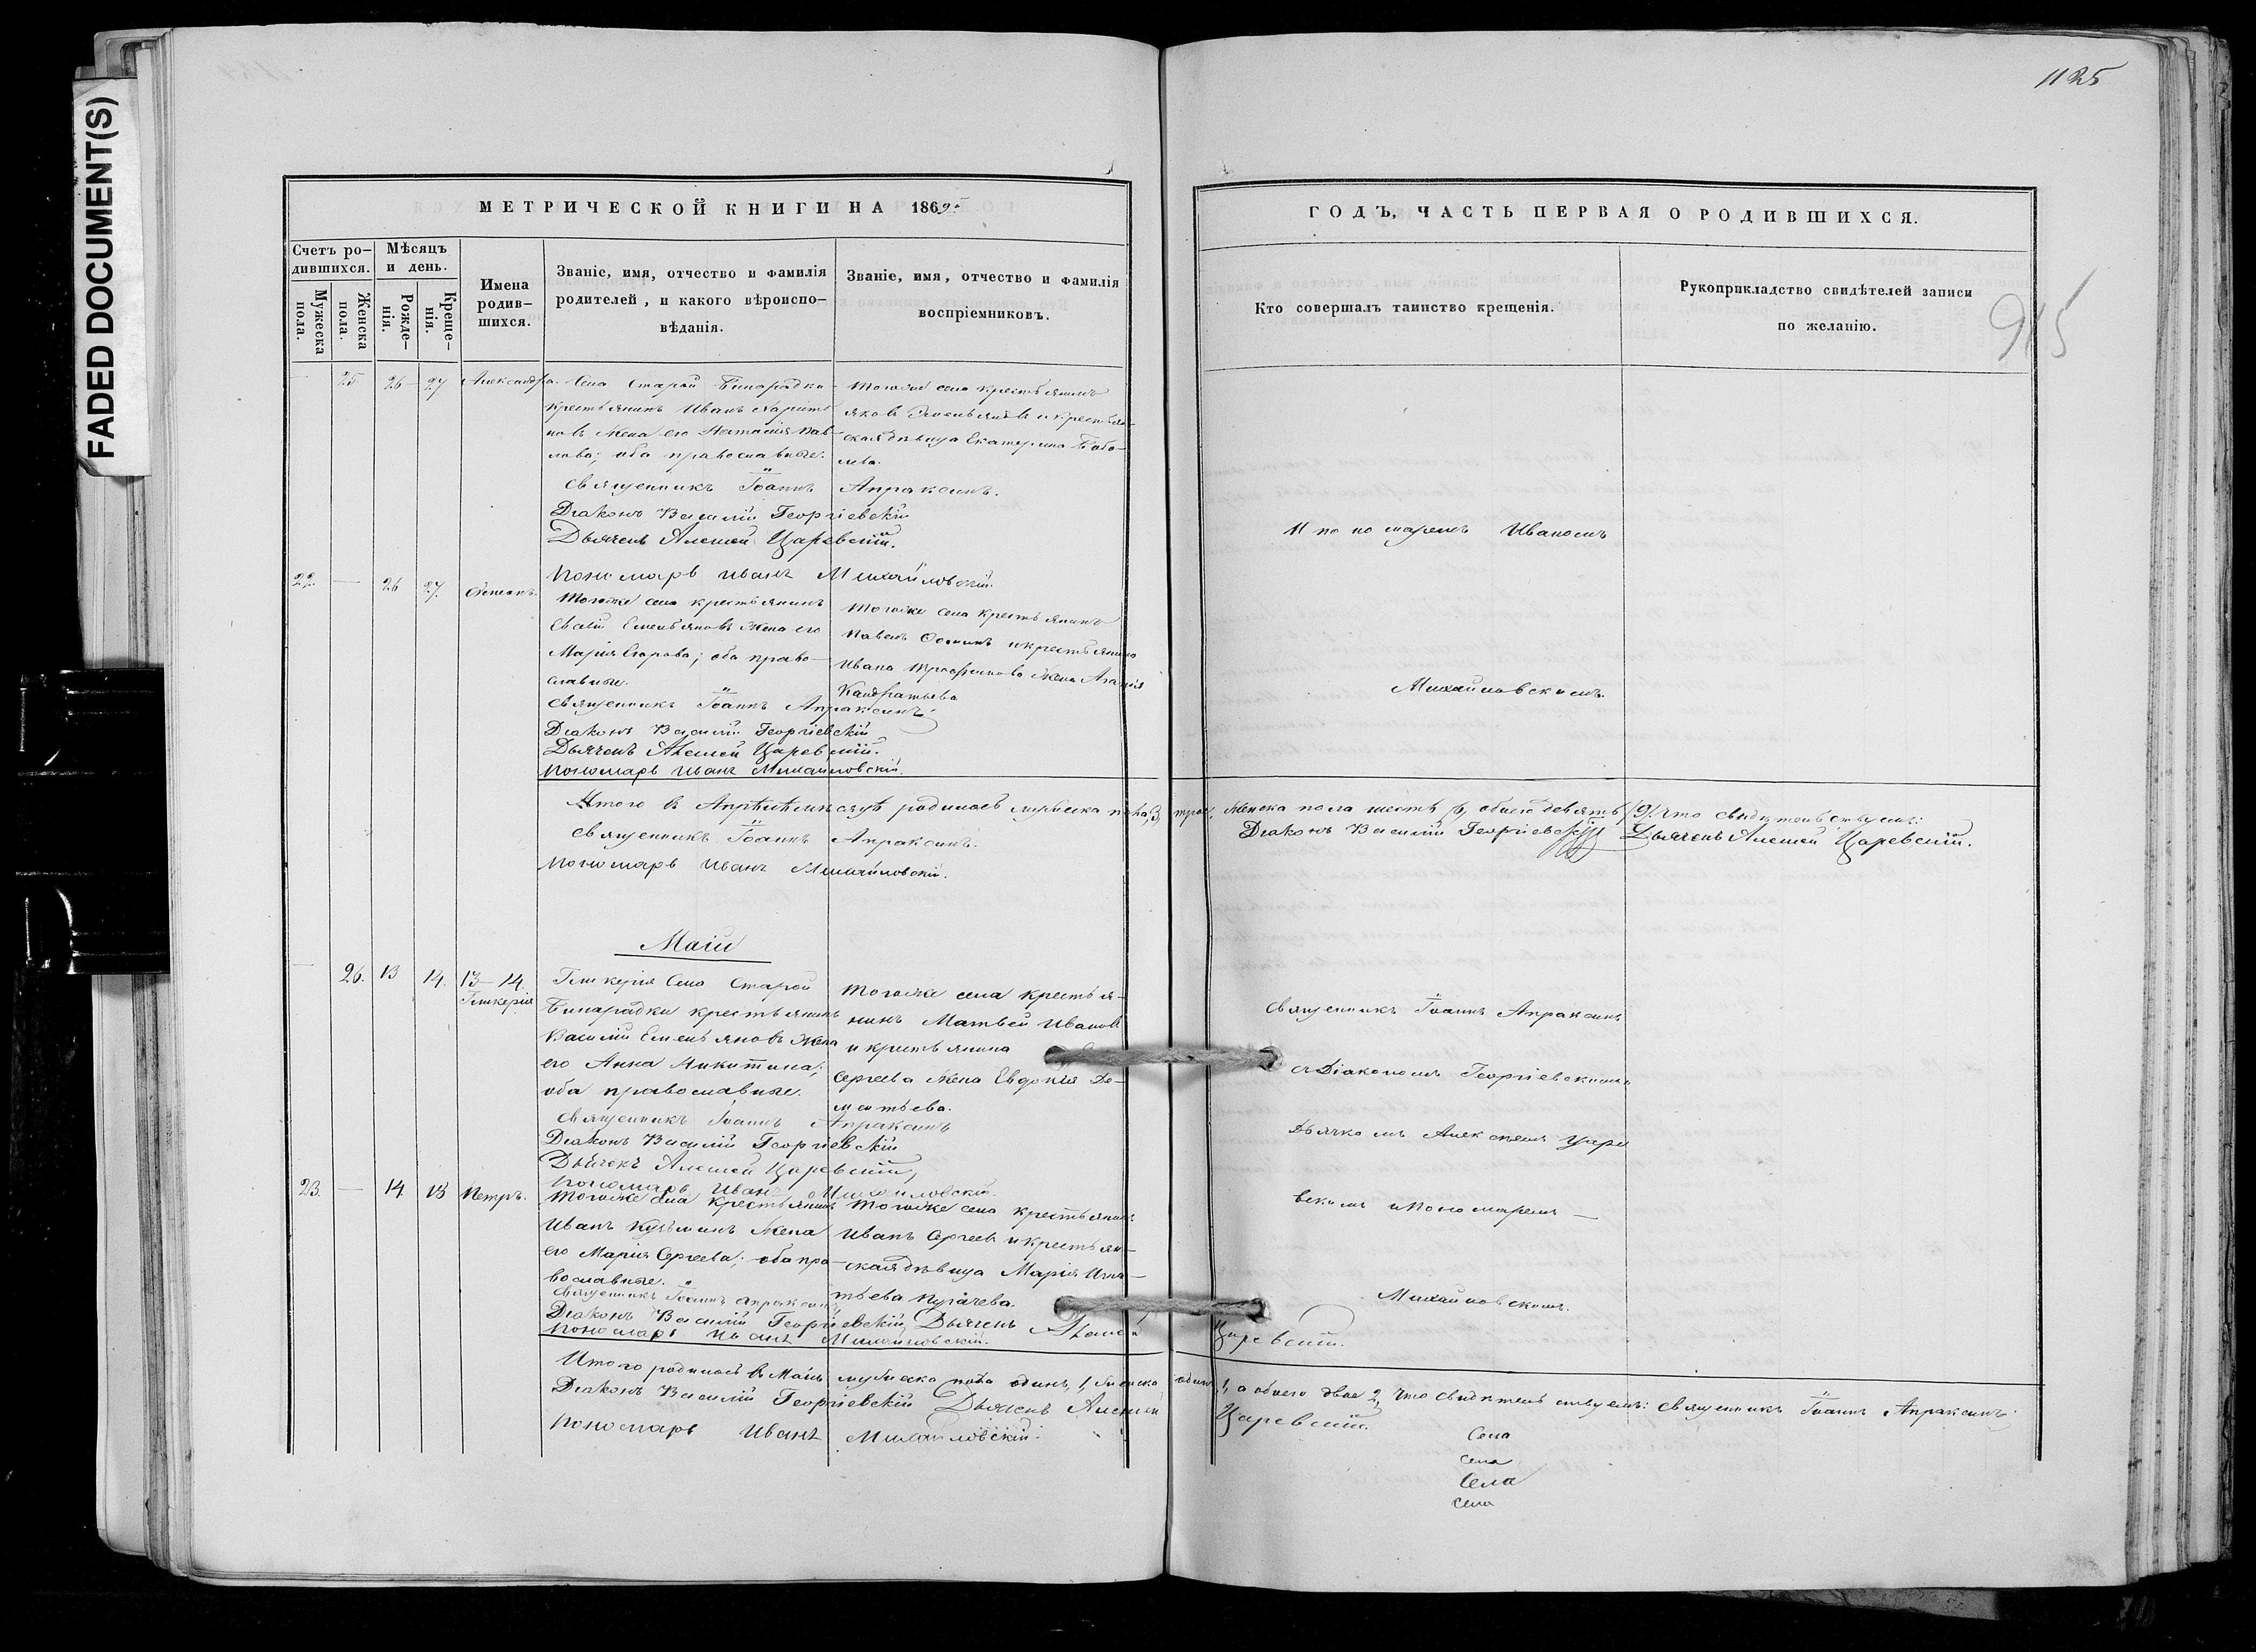 1125
915
FADED DOCUMENT(S)
МЕТРИЧЕСКОЙ КНИГИ НА 1869.
Счетъ ро-
дившихся.
Мужеска
пола.
Женска
пола.
Мѣсяцъ
и день.
Рожде-
нія.
Креще-
нія.
Имена
родив-
шихся.
Званіе, имя, отчество и фамилія
родителей, и какого вѣроиспо-
вѣданія.
Званіе, имя, отчество и фамилія
воспріемниковъ.
— 25. 26 — 27 Александра.
Села Старой Бинарадки
крестьянинъ Иванъ Харито
новъ жена его Наталія Пав-
лова; оба православные.
Тогоже села крестьянинъ
Яковъ Емельяновъ и крестьян-
ская дѣвица Екатерина
Священникъ Іоаннъ Апраксинъ.
Діаконъ Василій Георгіевскій
Дьячекъ Алексѣй Царевскій.
Пономарь Иванъ Михайловскій.
22. — 26 27. Степанъ.
Тогоже села крестьянинъ
Емельяновъ жена его
Марія Егорова; оба право-
славные.
Тогоже села крестьянинъ
Павелъ Осипъ и крестьянина
Ивана Трофимова жена Агафія
Кандратьева
Священникъ Іоаннъ Апраксинъ
Діаконъ Василій Георгіевскій
Дьячекъ Алексѣй Царевскій.
Пономарь Иванъ Михайловскій.
Итого в Апрѣлѣ мѣсяцѣ родилось мужеска пола, 3,
Священникъ Іоаннъ Апраксинъ.
Пономарь Иванъ Михайловскій.
Маій
— 26. 13 14. 13—14.
Гликерія
Гликерія Села Старой
Бинарадки крестьянинъ
Василій Емельяновъ жена
его Анна Никитина;
оба православные.
Тогоже села крестья-
нинъ Матвей Иванов
и крестьянина
Сергеева жена Евдокія Де-
ментьева.
Священникъ Іоаннъ Апраксинъ
Діаконъ Василій Георгіевскій
Дьячекъ Алексѣй Царевскій,
Пономарь Иванъ Михайловскій.
23. — 14 15 Петръ.
Тогоже села крестьянинъ
Иванъ Кузьминъ жена
его Марія Сергеева; оба пра-
вославные.
Тогоже села крестьянинъ
Иванъ Сергеевъ и крестьян-
ская дѣвица Марія Игна-
тьева Пугачева.
Священникъ Іоаннъ Апраксинъ
Діаконъ Василій Георгіевскій, Дьячекъ Алексѣй
Пономарь Иванъ Михайловскій.
Итого родилось в Маіи мужеска пола одинъ, 1, женска
Діаконъ Василій Георгіевскій Дьячекъ Алексѣй
Пономарь Иванъ Михайловскій.
ГОДЪ, ЧАСТЬ ПЕРВАЯ О РОДИВШИХСЯ.
Кто совершалъ таинство крещенія.
Рукоприкладство свидѣтелей записи
по желанію.
И пономаремъ Иваномъ
Михайловскимъ.
трое, женска пола шесть 6, обоего девять /9/. Что свидѣтельствуемъ:
Діаконъ Василій Георгіевскій Дьячекъ Алексѣй Царевскій.
Священникъ Іоаннъ Апраксинъ
съ Діакономъ Георгіевскимъ
Дьячкомъ Алексѣемъ Царе
вскимъ и Пономаремъ —
Михайловскимъ.
Царевскій.
одинъ, 1, а обоего двое 2, Что свидѣтельствуемъ: Священникъ Іоаннъ Апраксинъ
Царевскій.
Села
села
Села
села